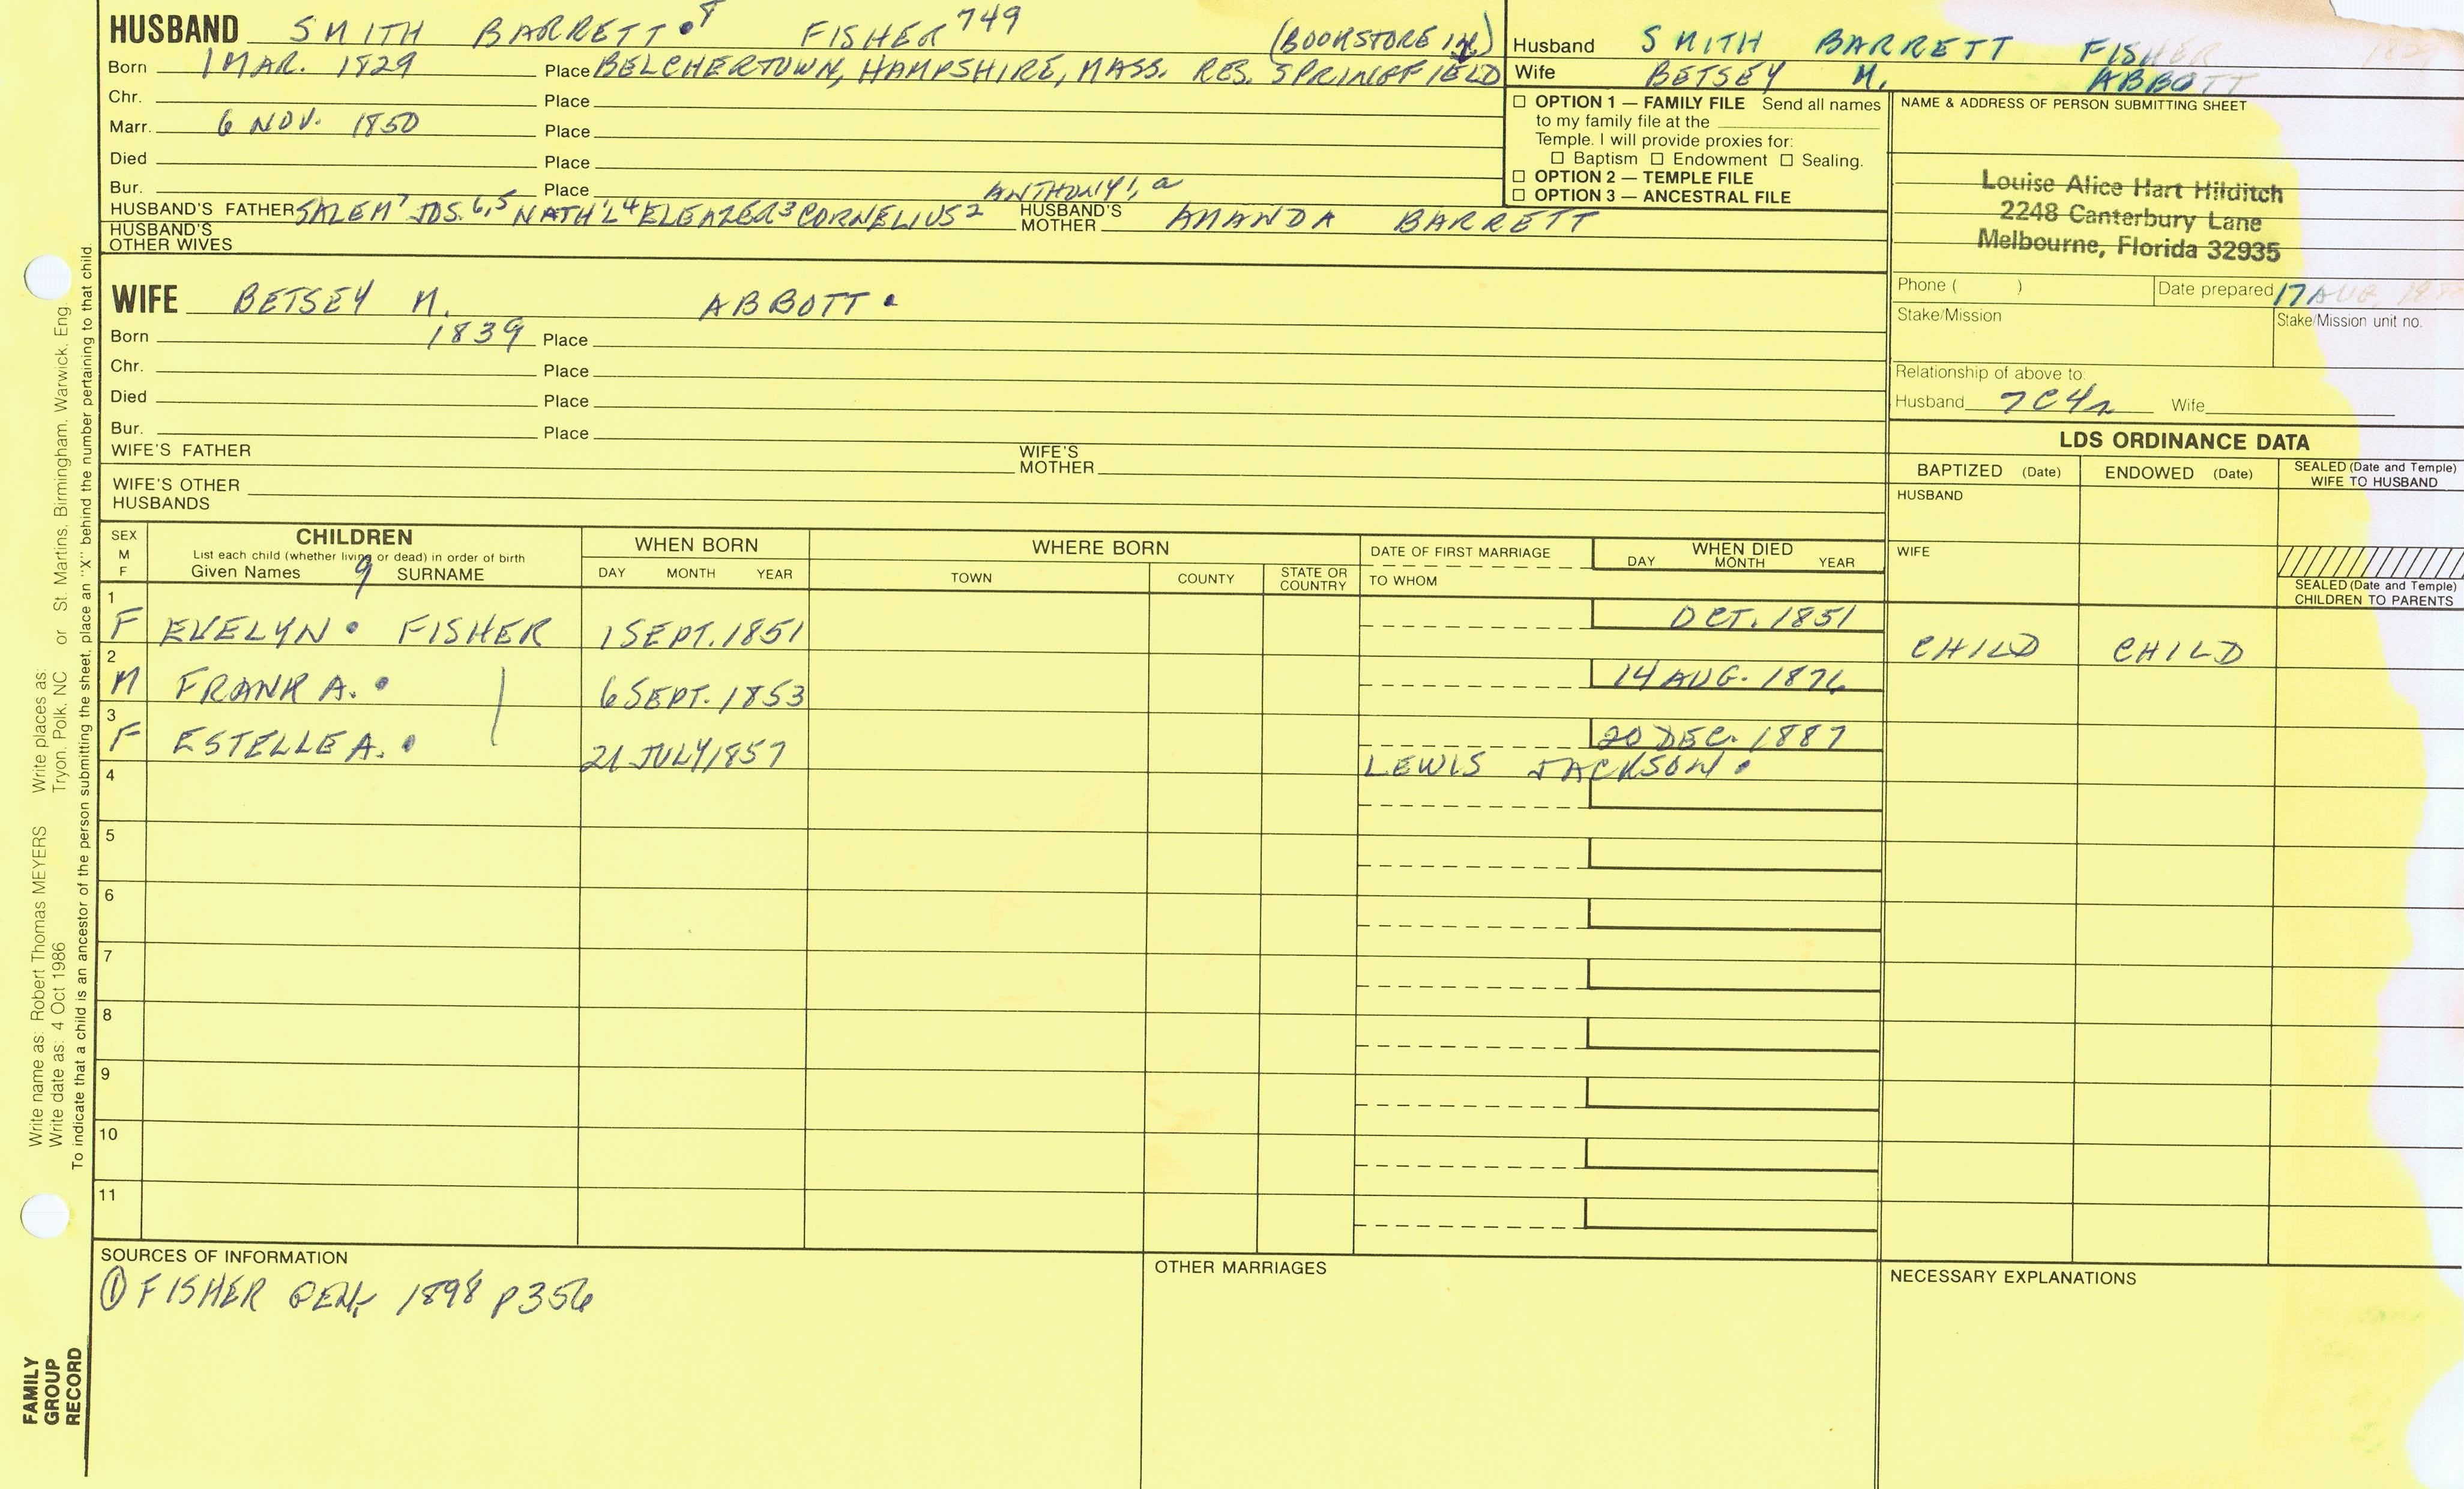 HUSBAND SMITH BARRETT•8 FISHER 749 (BOOKSTORE IN)
Born 1 MAR. 1829 Place BELCHERTOWN, HAMPSHIRE, MASS. RES. SPRINGFIELD
Chr. Place
Marr. 6 NOV. 1850 Place
Died Place
Bur. Place ANTHONY1, a
HUSBAND'S FATHER SALEM7 JOS.6,5 NATH'L4 ELEAZER3 CORNELIUS2 HUSBAND'S MOTHER AMANDA BARRETT
HUSBAND'S OTHER WIVES
WIFE BETSEY M. ABBOTT •
Born 1839 Place
Chr. Place
Died Place
Bur. Place
WIFE'S FATHER WIFE'S MOTHER
WIFE'S OTHER HUSBANDS
Husband SMITH BARRETT FISHER 1829
Wife BETSEY M. ABBOTT
☐ OPTION 1 — FAMILY FILE Send all names
to my family file at the
Temple. I will provide proxies for:
☐ Baptism ☐ Endowment ☐ Sealing.
☐ OPTION 2 — TEMPLE FILE
☐ OPTION 3 — ANCESTRAL FILE
NAME & ADDRESS OF PERSON SUBMITTING SHEET
Louise Alice Hart Hilditch
2248 Canterbury Lane
Melbourne, Florida 32935
Phone ( ) Date prepared 17 AUG
Stake/Mission Stake/Mission unit no.
Relationship of above to:
Husband 7C4r Wife
LDS ORDINANCE DATA
BAPTIZED (Date) ENDOWED (Date) SEALED (Date and Temple) WIFE TO HUSBAND
HUSBAND
WIFE
SEALED (Date and Temple) CHILDREN TO PARENTS
SEX M F CHILDREN WHEN BORN WHERE BORN DATE OF FIRST MARRIAGE WHEN DIED
List each child (whether living or dead) in order of birth
Given Names 9 SURNAME DAY MONTH YEAR TOWN COUNTY STATE OR COUNTRY TO WHOM DAY MONTH YEAR
1 F EVELYN • FISHER 1 SEPT. 1851 OCT. 1851 CHILD CHILD
2 M FRANK A. • 6 SEPT. 1853 14 AUG. 1876
3 F ESTELLE A. • 21 JULY 1857 20 DEC. 1887
LEWIS JACKSON •
4
5
6
7
8
9
10
11
SOURCES OF INFORMATION
① FISHER GEN. 1898 P356
OTHER MARRIAGES
NECESSARY EXPLANATIONS
Write name as: Robert Thomas MEYERS Write places as:
Write date as: 4 Oct 1986 Tryon, Polk, NC or St. Martins, Birmingham, Warwick, Eng.
To indicate that a child is an ancestor of the person submitting the sheet, place an "X" behind the number pertaining to that child.
FAMILY
GROUP
RECORD